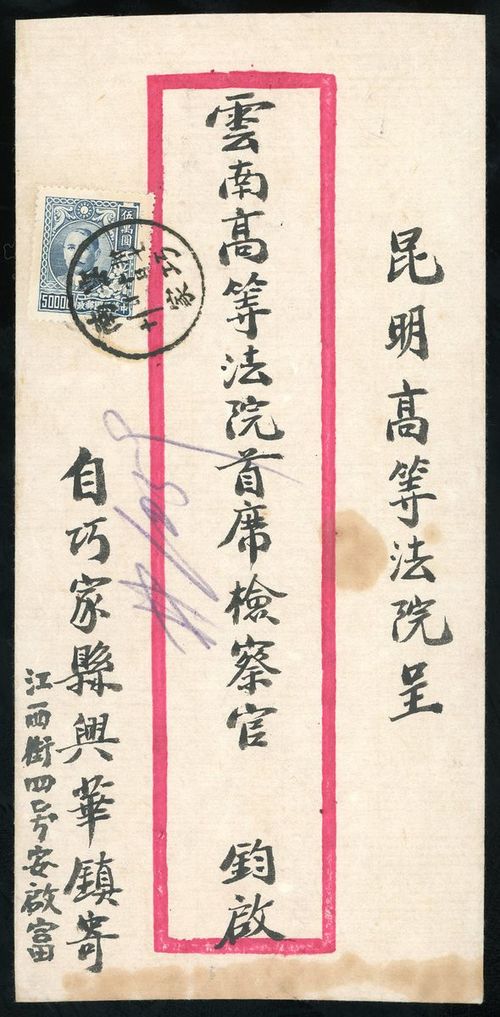 昆明高等法院呈
雲南高等法院首席檢察官 鈞啟
自巧家縣興華鎮寄
江西街四号安啟富
伍萬圓
50000
巧家